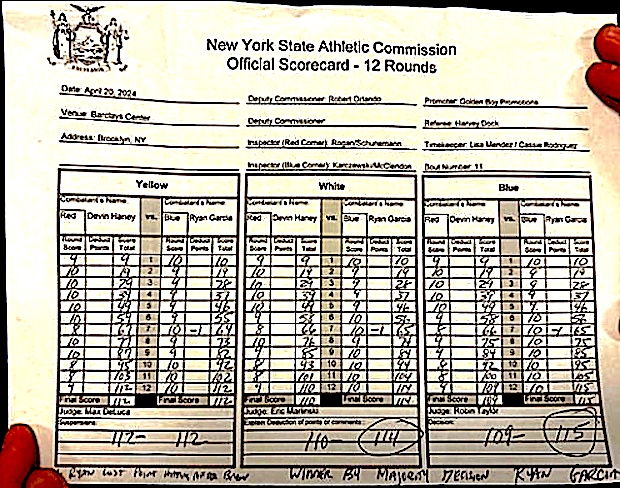 New York State Athletic Commission
Official Scorecard - 12 Rounds
Date: April 20, 2024 Deputy Commissioner: Robert Orlando Promoter: Golden Boy Promotions
Venue: Barclays Center Deputy Commissioner Referee: Harvey Dock
Address: Brooklyn, NY Inspector (Red Corner): Rogan/Schunemann Timekeeper: Lisa Mendez / Cassie Rodriguez
Inspector (Blue Corner): Karczewski/McClendon Bout Number: 11
Yellow White Blue
Combatant's Name Combatant's Name Combatant's Name Combatant's Name Combatant's Name Combatant's Name
Red Devin Haney vs. Blue Ryan Garcia Red Devin Haney vs. Blue Ryan Garcia Red Devin Haney vs. Blue Ryan Garcia
Round Score Deduct Points Score Total Round Score Deduct Points Score Total Round Score Deduct Points Score Total Round Score Deduct Points Score Total Round Score Deduct Points Score Total Round Score Deduct Points Score Total
9 9 1 10 10 9 9 1 10 10 9 9 1 10 10
10 19 2 9 19 10 19 2 9 19 10 19 2 9 19
10 29 3 9 28 10 29 3 9 28 10 29 3 9 28
10 39 4 9 37 10 39 4 9 37 10 39 4 9 37
10 49 5 9 46 10 49 5 9 46 10 49 5 9 46
10 59 6 9 55 9 58 6 10 56 9 58 6 10 56
8 67 7 10 -1 64 8 66 7 10 -1 65 8 66 7 10 -1 65
10 77 8 9 73 10 76 8 9 74 9 75 8 10 75
10 87 9 9 82 9 85 9 10 84 9 84 9 10 85
8 95 10 10 92 8 93 10 10 94 8 92 10 10 95
8 103 11 10 102 8 101 11 10 104 8 100 11 10 105
9 112 12 10 112 9 110 12 10 114 9 109 12 10 115
Final Score 112 Final Score 112 Final Score 110 Final Score 114 Final Score 109 Final Score 115
Judge: Max DeLuca Judge: Eric Marlinski Judge: Robin Taylor
Suspensions: Explain Deduction of points or comments: Decision:
112- 112 110- 114 109- 115
RYAN LOST POINT HITTING AFTER BREAK WINNER BY MAJORITY DECISION RYAN GARCIA